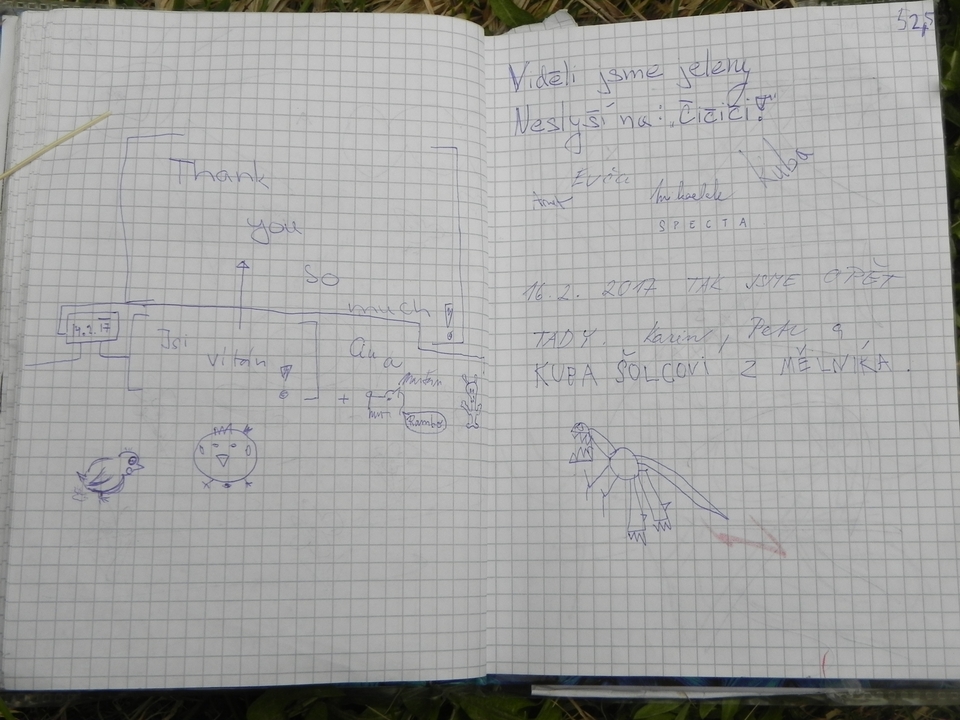 Thank
you
so
much!
14.2.17
Jsi
vítán!
+
Rambo
52,5
Viděli jsme jeleny
Neslyší na: „Čičiči!"
Kuba
Evča
SPECTA
16.2. 2017 TAK JSME OPĚT
TADY. Karin, Petr a
KUBA ŠOLCOVI Z MĚLNÍKA.